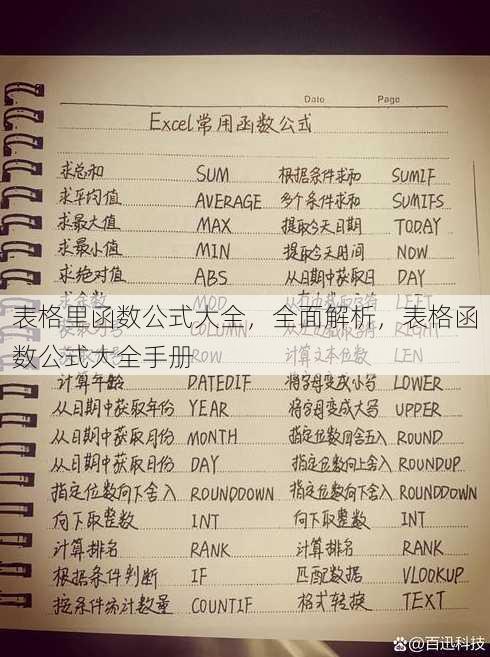 Date Page
Excel常用函数公式
求总和 SUM 根据条件求和 SUMIF
求平均值 AVERAGE 多个条件求和 SUMIFS
求最大值 MAX 提取今天日期 TODAY
求最小值 MIN 提取今天时间 NOW
求绝对值 ABS 从日期中获取日 DAY
求余数 MOD LEFT
表格里函数公式大全，全面解析，表格函
数公式大全手册
COLUMN RIGHT
ROW 计算文本位数 LEN
计算年龄 DATEDIF 将字母变成小写 LOWER
从日期中获取年份 YEAR 将字母变成大写 UPPER
从日期中获取月份 MONTH 指定位数四舍五入 ROUND
从日期中获取日份 DAY 指定位数向上舍入 ROUNDUP
指定位数向下舍入 ROUNDDOWN 指定位数向下舍入 ROUNDDOWN
向下取整数 INT 向下取整数 INT
计算排名 RANK 计算排名 RANK
根据条件判断 IF 匹配数据 VLOOKUP
按条件统计数量 COUNTIF 格式转换 TEXT
@百迅科技